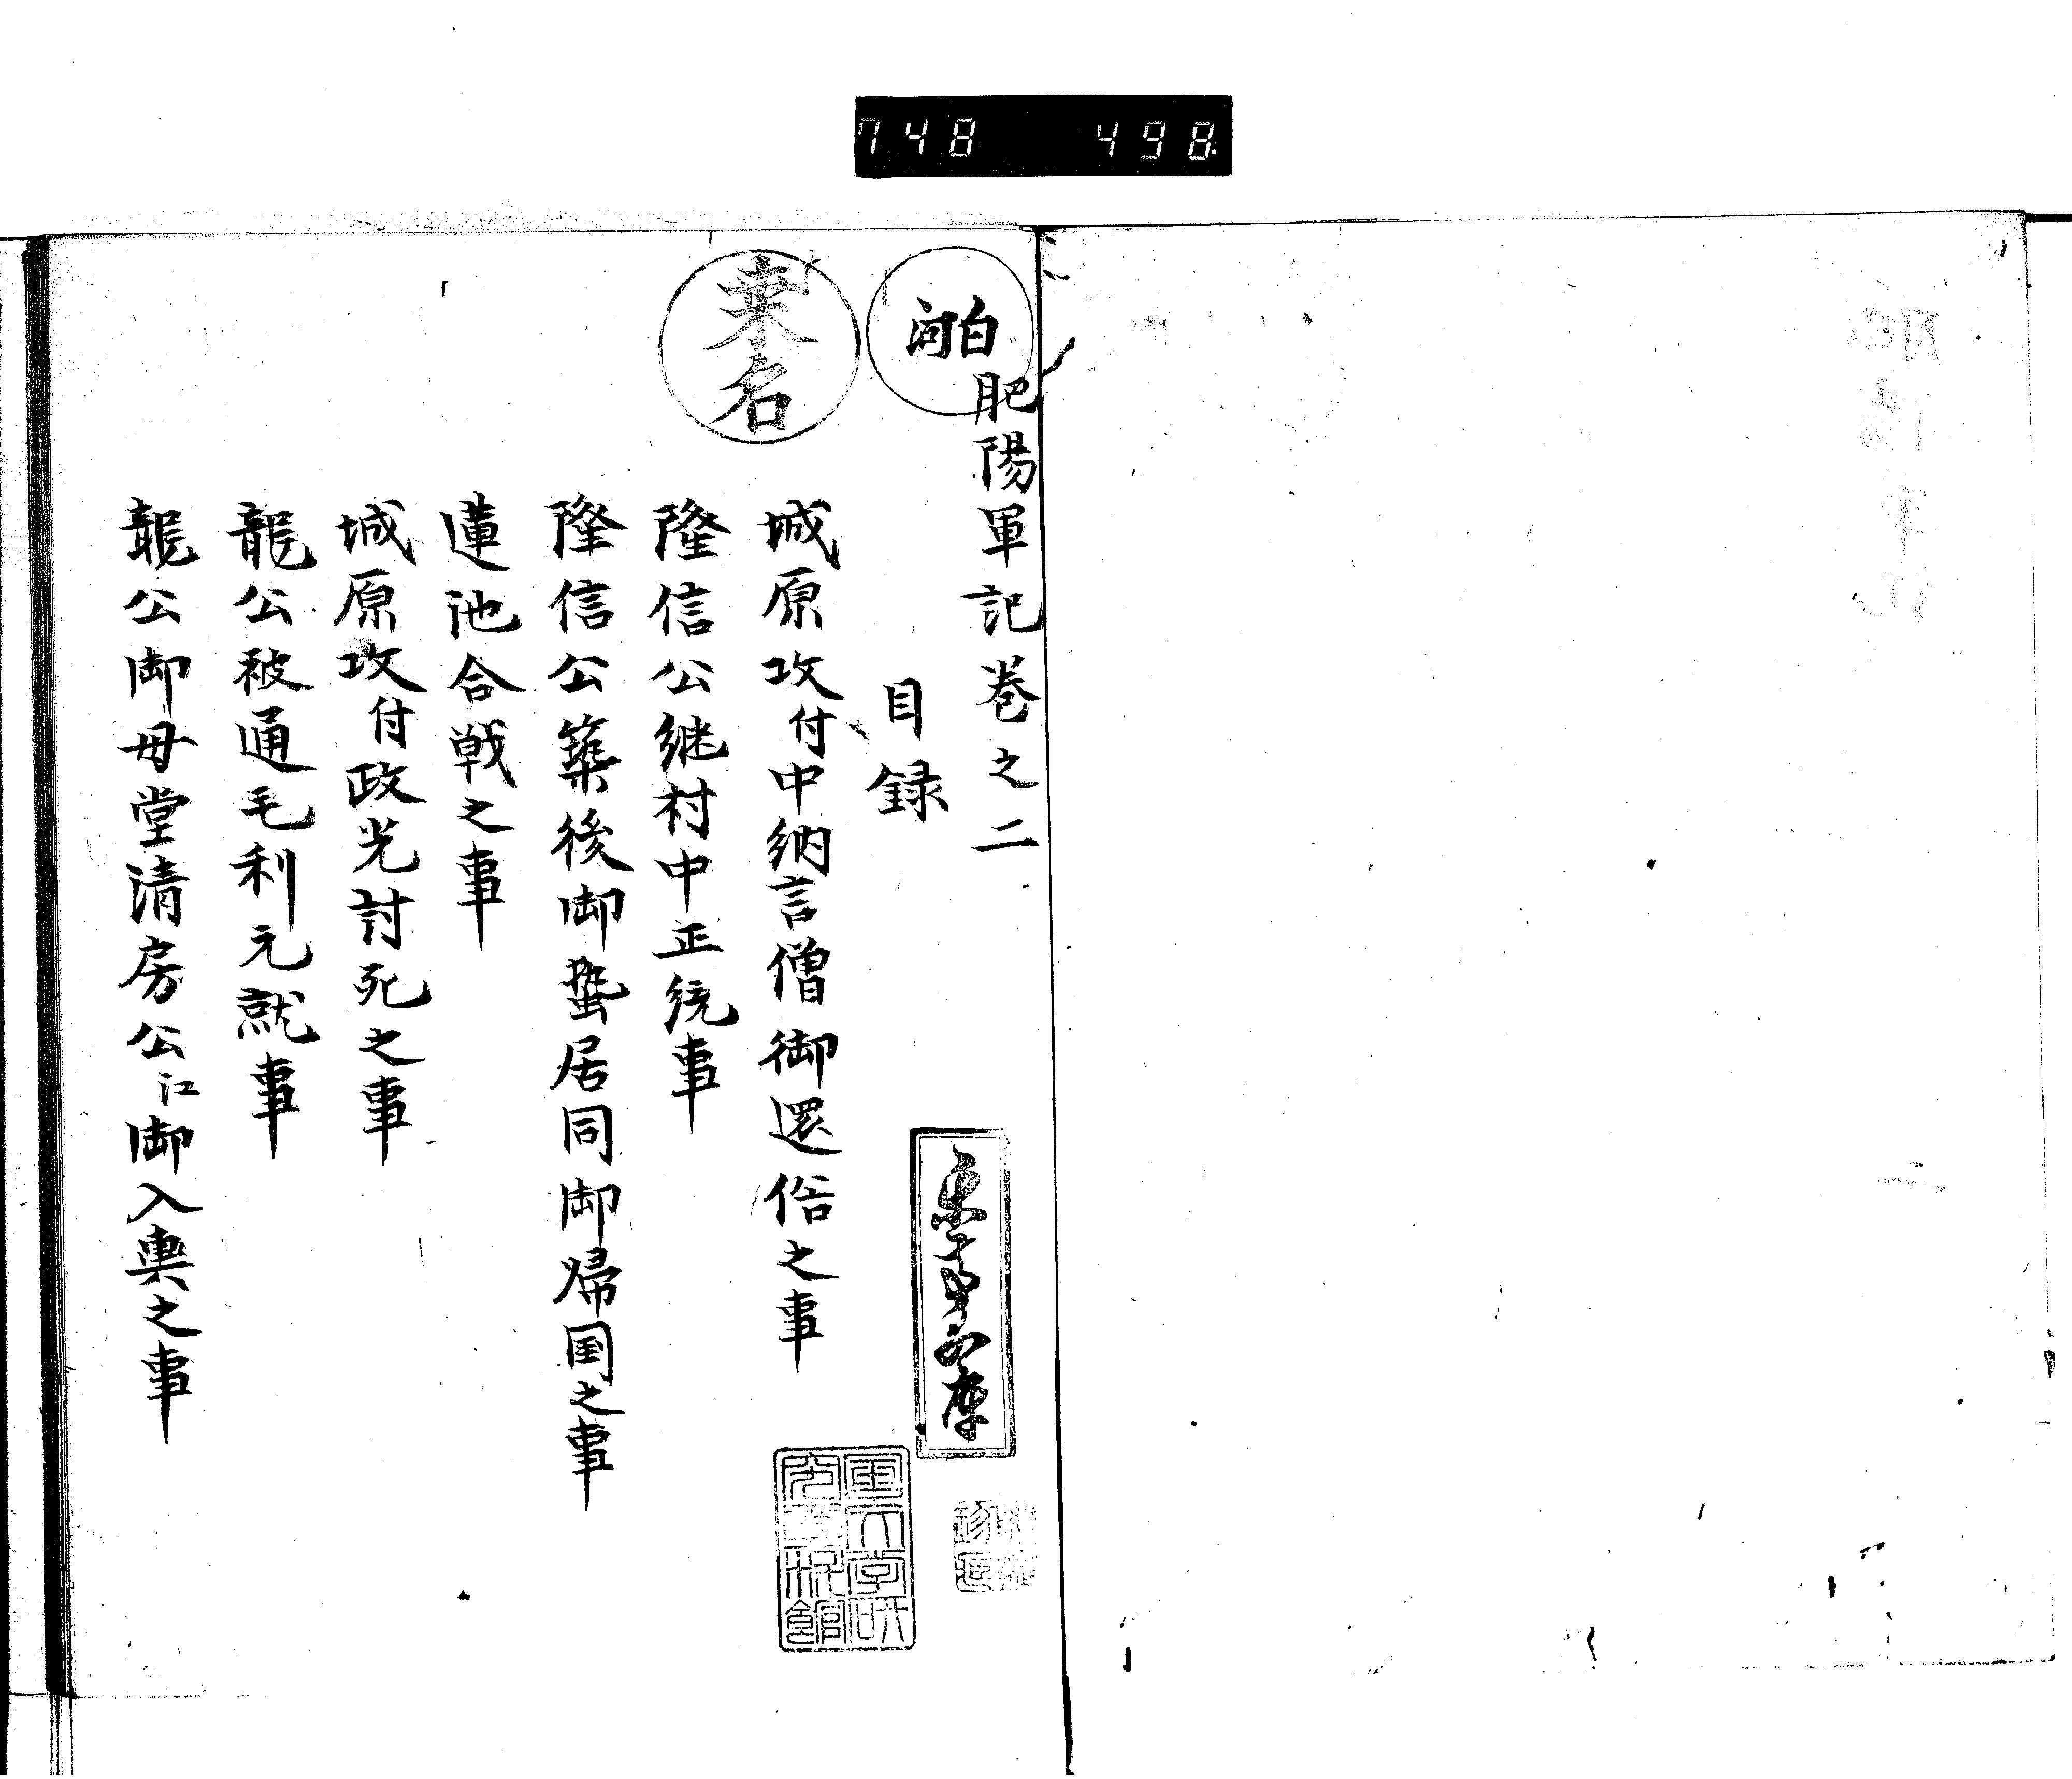 748 498
白河
桑名
肥陽軍記巻之二
目録
城原攻付中納言僧御還俗之事
隆信公継村中正統事
隆信公築後御蟄居同御帰国之事
蓮池合戦之事
城原攻付政光討死之事
龍公被通毛利元就事
龍公御母堂清房公江御入輿之事